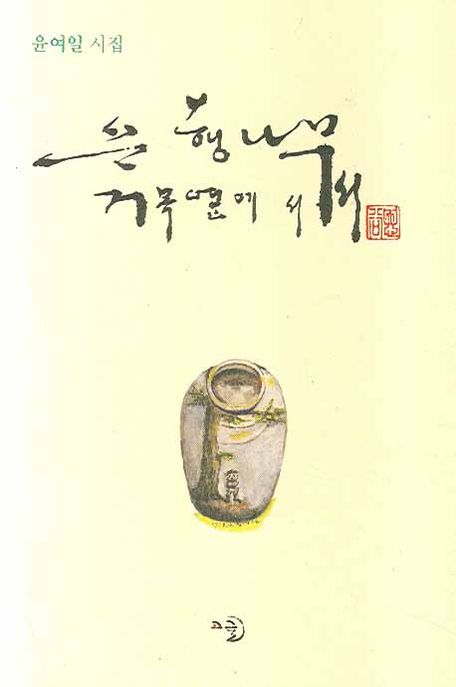 윤여일 시집
은행나무
거목옆에 서서
고글